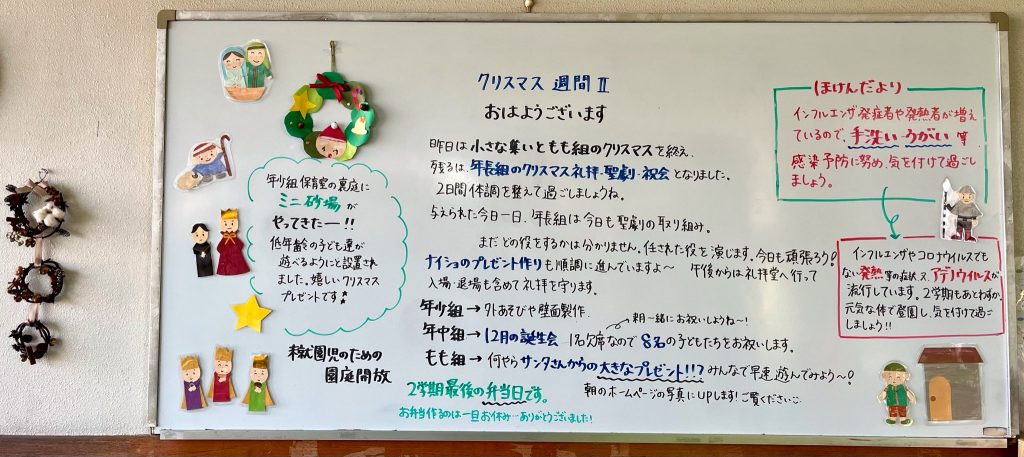 クリスマス 週間 Ⅱ
おはようございます
昨日は 小さな集いともも組のクリスマスを終え、
残るは、年長組のクリスマス礼拝・聖劇・祝会となりました。
2日間体調を整えて過ごしましょうね。
与えられた今日一日、年長組は今日も聖劇の取り組み。
まだどの役をするかは分かりません。任された役を演じます。今日も頑張ろう!
ナイショのプレゼント作りも順調に進んでいますよ〜 午後からは礼拝堂へ行って
入場・退場も含めて礼拝を守ります。
年少組→外あそびや壁面製作。
来月一緒にお祝いしようね〜!
年中組→12月の誕生会 1名欠席なので 8名の子どもたちをお祝いします。
もも組→何やらサンタさんからの大きなプレゼント!!? みんなで早速遊んでみよう〜!
2学期最後の弁当日です。
お弁当作るのは一旦お休み…ありがとうございました!
朝のホームページの写真にUPします!ご覧ください
年少組保育室の裏庭に
ミニ砂場が
やってきたー!!
低年齢の子ども達が
遊べるようにと設置され
ました。嬉しいクリスマス
プレゼントです♪
未就園児のための
園庭開放
ほけんだより
インフルエンザ発症者や発熱者が増え
ているので、手洗い・うがい 等
感染予防に努め、気を付けて過ごし
ましょう。
インフルエンザやコロナウイルスでも
ない発熱 等の症状 又、アデノウイルスが
流行しています。2学期もあとわずか。
元気な体で登園し、気を付けて過ご
しましょう!!